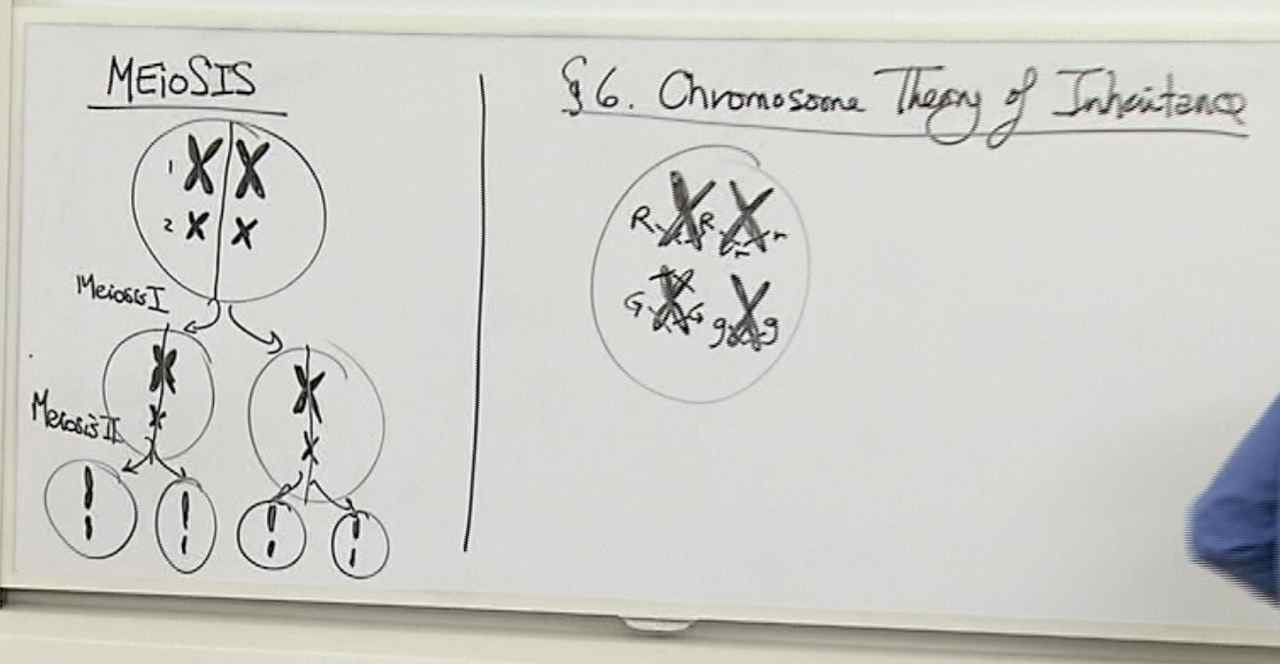 MEiOSIS
1
2
Meiosis I
Meiosis II
§6. Chromosome Theory of Inheritance
R R r r
G G g g